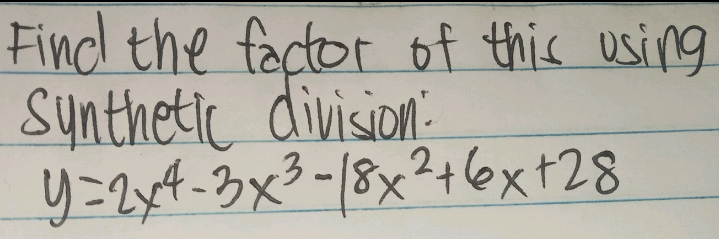 Find the factor of this using
synthetic division:
y=2x⁴-3x³-18x²+6x+28